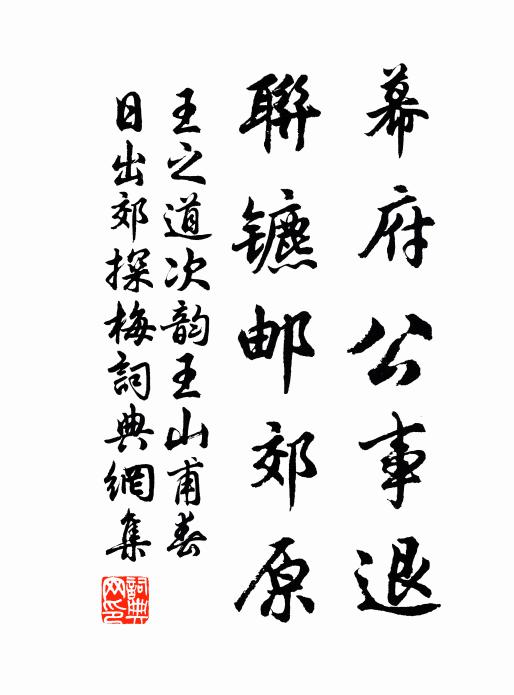 幕府公事退
聯镳邮郊原
王之道次韵王山甫春
日出郊探梅詞典網集
詞典
网印